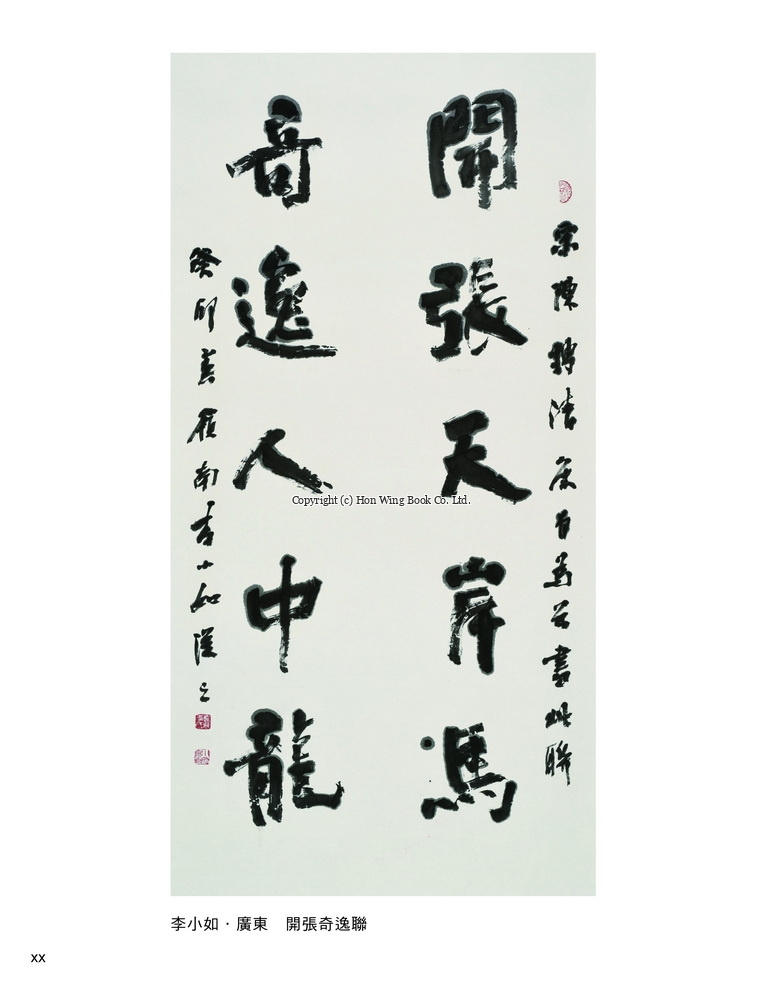 宋陳摶清康有為公書此聯
開張天岸馬
奇逸人中龍
癸卯夏嶺南李小如之
Copyright (c) Hon Wing Book Co. Ltd.
李小如·廣東　開張奇逸聯
xx